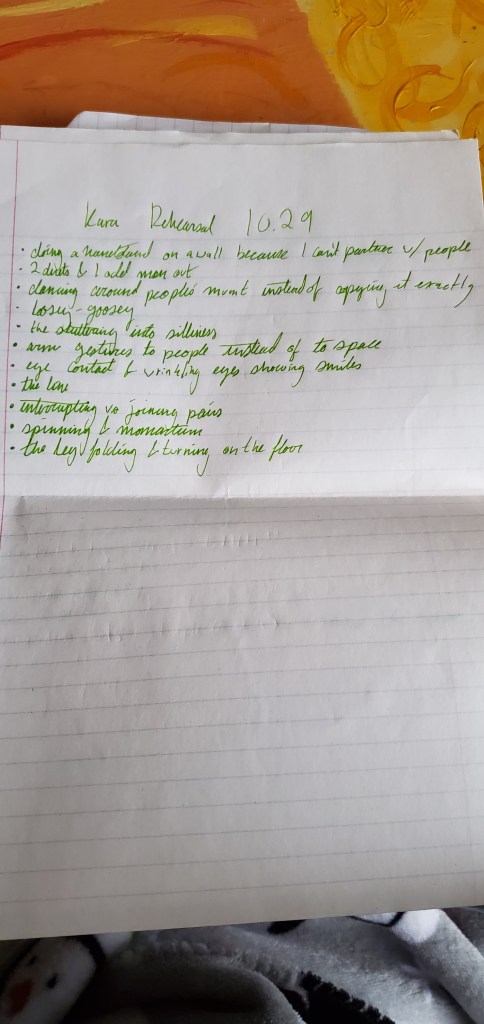 Kara Rehearsal 10.29
• doing a handstand on a wall because I can't partner w/ people
• 2 duets & 1 odd man out
• dancing around people's mvmt instead of copying it exactly
• loosey-goosey
• the stuttering into silliness
• arm gestures to people instead of to space
• eye contact & wrinkling eyes showing smiles
• the line
• interrupting vs joining pairs
• spinning & momentum
• the leg folding & turning on the floor